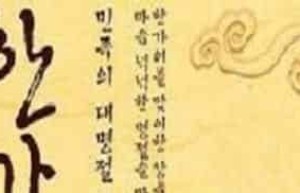 한가위를 맞이한
마음 넉넉한 명절을
민족의 대명절
한가